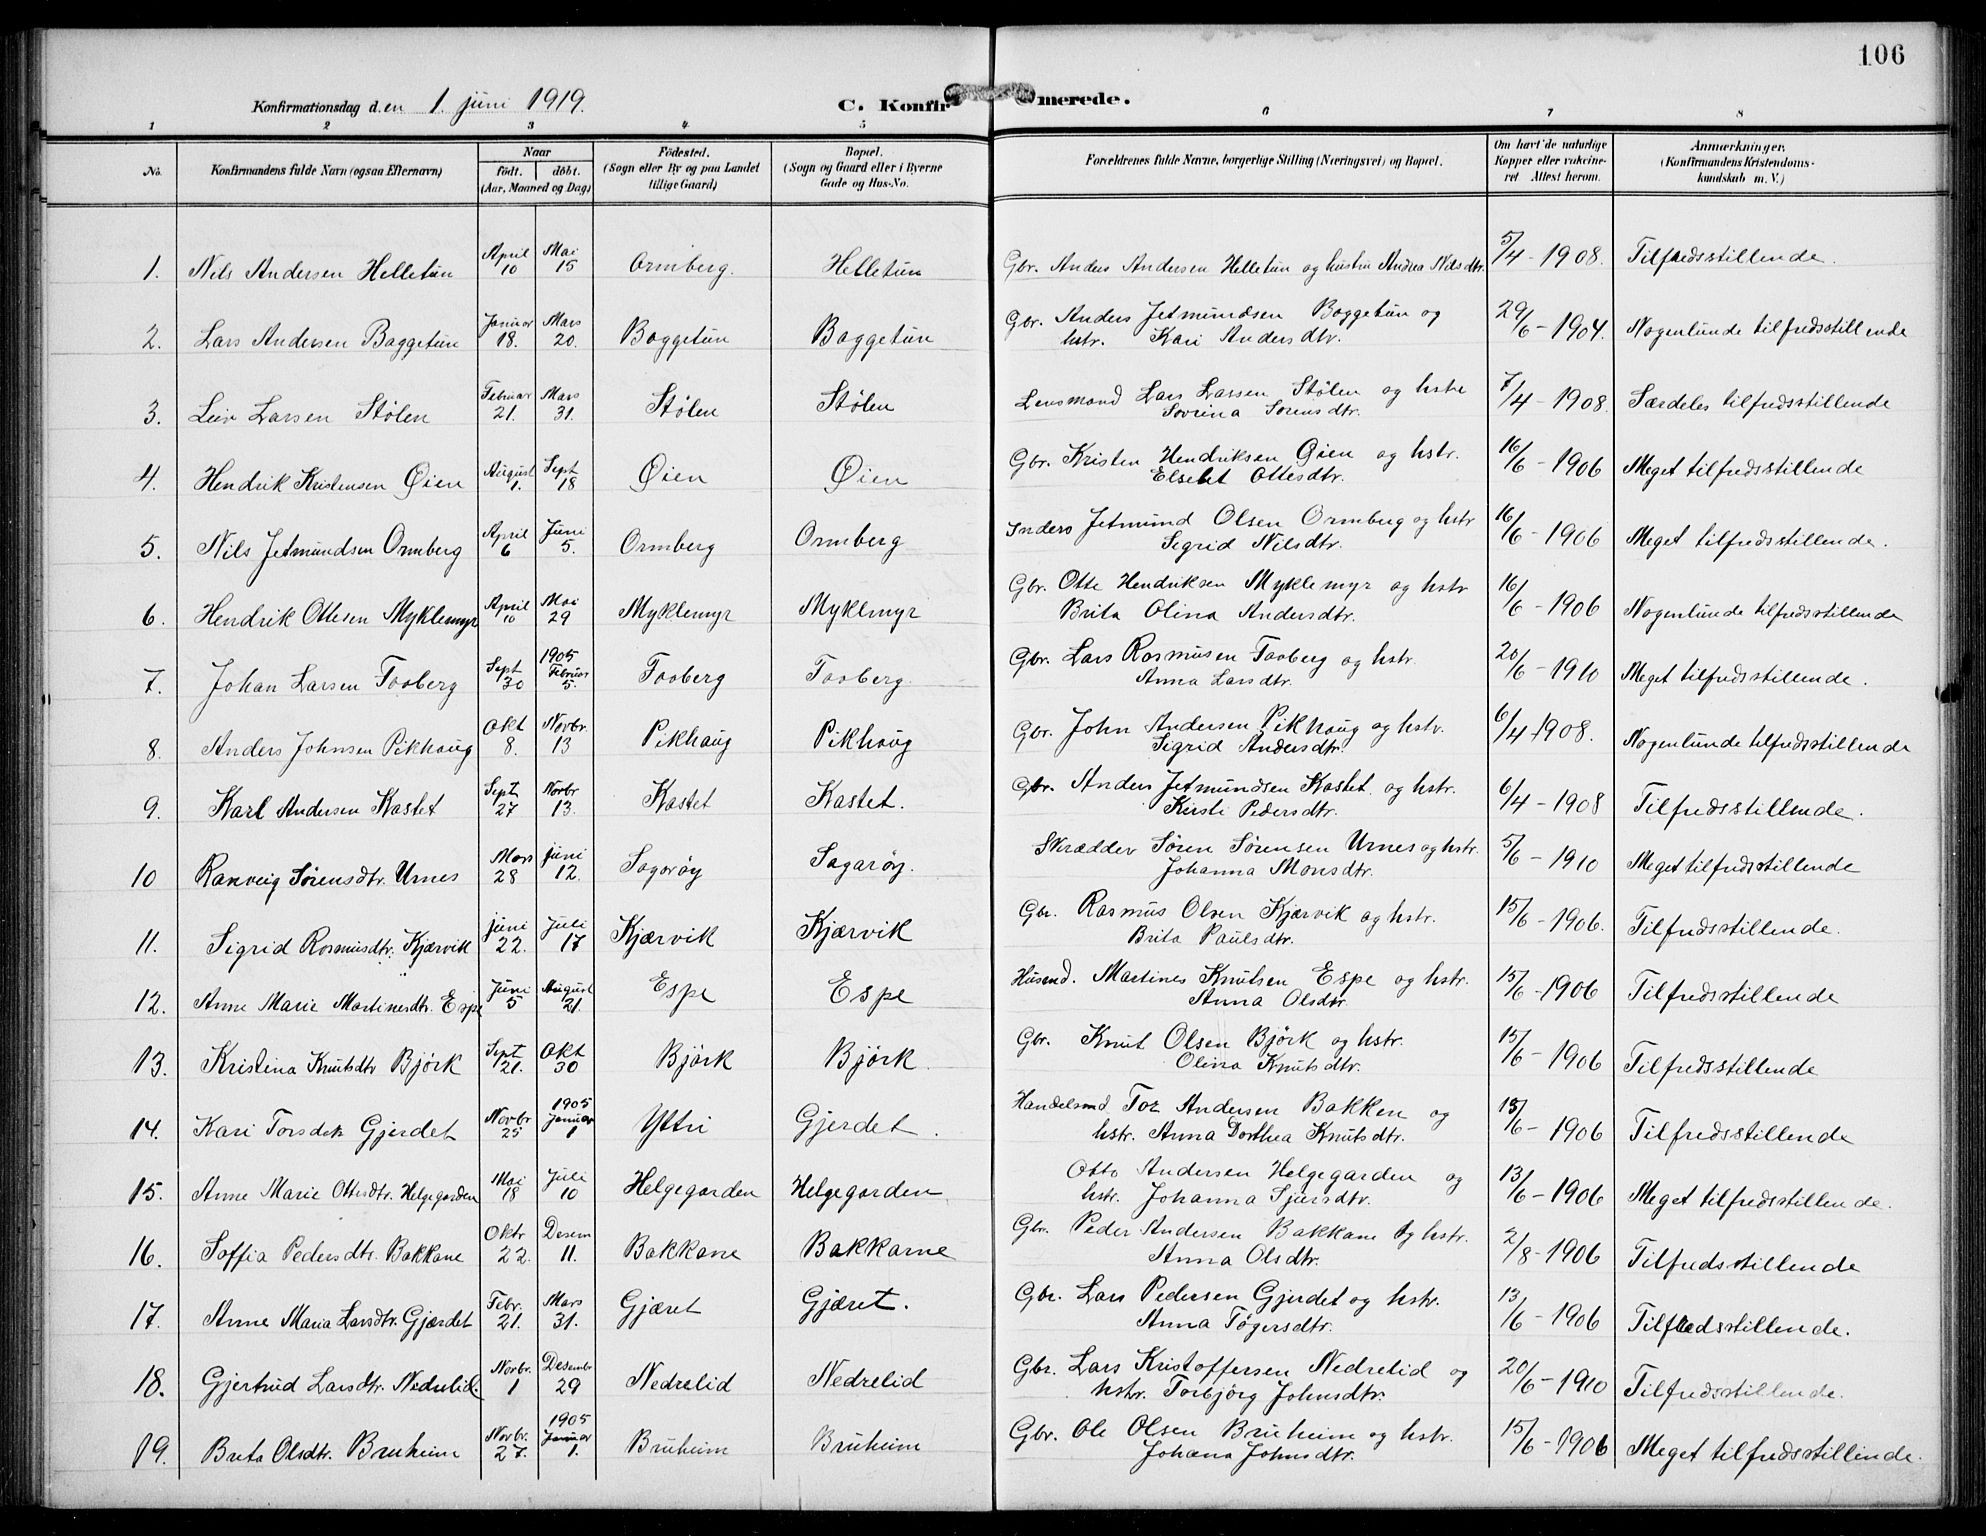 106
Konfirmationsdag den 1. juni 1919.
C. Konfirmerede.
1 2 3 4 5 6 7 8
No. Konfirmandens fulde Navn (ogsaa Efternavn) Naar født. døbt. (Aar, Maaned og Dag) Fødested. (Sogn eller By og paa Landet tillige Gaard) Bopæl. (Sogn og Gaard eller i Byerne Gade og Hus-No. Forældrenes fulde Navne, borgerlige Stilling (Næringsvei) og Bopæl. Om havt de naturlige Kopper eller vakcineret Attest herom. Anmærkninger. (Konfirmandens Kristendomskundskab m. V.)
1. Nils Andersen Helletun April 10 Mai 15 Ormberg. Helletun Gbr. Anders Andersen Helletun og hustru Andrea Nilsdtr. 5/4 - 1908. Tilfredsstillende.
2. Lars Andersen Baggetun Januar 18. Mars 20. Baggetun Baggetun Gbr. Anders Jetmundsen Baggetun og
hstr. Kari Andersdtr. 29/6 - 1904. Nogenlunde tilfredsstillende
3. Leiv Larsen Stølen Februar 21. Mars 31. Stølen Stølen Lensmand Lars Larsen Stølen og hstr
Sorina Sørensdtr. 7/4 - 1908. Særdeles tilfredsstillende
4. Hendrik Kristensen Øien August 1. Sept 18 Øien Øien Gbr. Kristen Hendriksen Øien og hstr.
Elsebet Ottesdtr. 16/6 - 1906 Meget tilfredsstillende
5. Nils Jetmundsen Ormberg April 6 Juni 5. Ormberg Ormberg Inders Jetmund Olsen Ormberg og hstr
Sigrid Nilsdtr. 16/6 - 1906 Meget tilfredsstillende.
6. Hendrik Ottesen Myklemyr April 10 Mai 29 Myklemyr Myklmyr Gbr. Otte Hendriksen Myklemyr og hstr
Brita Olina Andersdtr. 16/6 - 1906 Nogenlunde tilfredsstillende
7. Johan Larsen Faaberg Sept 30 1905 Februar 5. Faaberg Faaberg. Gbr. Lars Rasmusen Faaberg og hstr.
Anna Larsdtr. 20/6 - 1910 Meget tilfredsstillende.
8. Anders Johnsen Pikhaug Okt 8. Novbr. 13 Pikhaug Pikhaug Gbr. John Andersen Pikhaug og hstr.
Sigrid Andersdtr. 6/4 - 1908. Nogenlunde tilfredsstillende
9. Karl Andersen Kastet Sept 27 Novbr 13. Kastet Kastet. Gbr. Anders Jetmundsen Kastet og hstr.
Kirsti Pedersdtr. 6/4 - 1908 Tilfredsstillende.
10 Ranveig Sørensdtr. Urnes Mars 28 Juni 12. Sagarøy Sagarøy. Skrædder Søren Sørensen Urnes og hstr.
Johanna Monsdtr. 5/6 - 1910 Meget tilfredsstillende
11. Sigrid Rasmusdtr. Kjærvik Juni 22. Juli 17 Kjærvik Kjærvik Gbr. Rasmus Olsen Kjærvik og hstr.
Brita Paulsdtr. 15/6 - 1906. Tilfredsstillende.
12. Anne Marie Martinesdtr. Espe Juni 5 August 21. Espe Espe Husmd. Martines Knutsen Espe og hstr.
Anna Olsdtr. 15/6 - 1906 Tilfredsstillende
13. Kristina Knutsdtr Bjørk Sept 21. Okt 30 Bjørk Bjørk Gbr. Knut Olsen Bjørk og hstr.
Olina Knutsdtr. 15/6 - 1906 Tilfredsstillende
14. Kari Torsdtr Gjerdet Novbr 25 1905 Januar 1 Yttri Gjerdet. Handelsmd Tor Andersen Bakken og
hstr. Anna Dorthea Knutsdtr. 13/6 - 1906 Tilfredsstillende
15. Anne Marie Ottesdtr. Helgegarden Mai 18 Juli 10 Helgegarden Helgegarden Otto Andersen Helgegarden og
hstr. Johanna Sjursdtr. 13/6 - 1906 Meget tilfredsstillende.
16. Soffia Pedersdtr. Bakkane Oktr 22. Desem 11. Bakkane Bakkarne Gbr. Peder Andersen Bakkane og hstr.
Anna Olsdtr. 2/8 - 1906 Tilfredsstillende
17. Anne Maria Larsdtr. Gjærdet Febr. 21. Mars 31. Gjæret Gjæret. Gbr. Lars Pedersen Gjerdet og hstr.
Anna Tøgersdtr. 13/6 - 1906 Tilfredsstillende.
18. Gjertrud Larsdtr. Nedrelid. Novbr. 1 Desembr 29 Nedrelid Nedrelid Gbr. Lars Kristoffersen Nedrelid og
hstr. Torbjørg Johnsdtr. 20/6 - 1910 Tilfredsstillende.
19. Brita Olsdtr. Bruheim Novbr. 27. 1905 Januar 1. Bruheim Bruheim Gbr. Ole Olsen Bruheim og hstr.
Johana Johnsdtr. 15/6 - 1906 Meget tilfredsstillende.